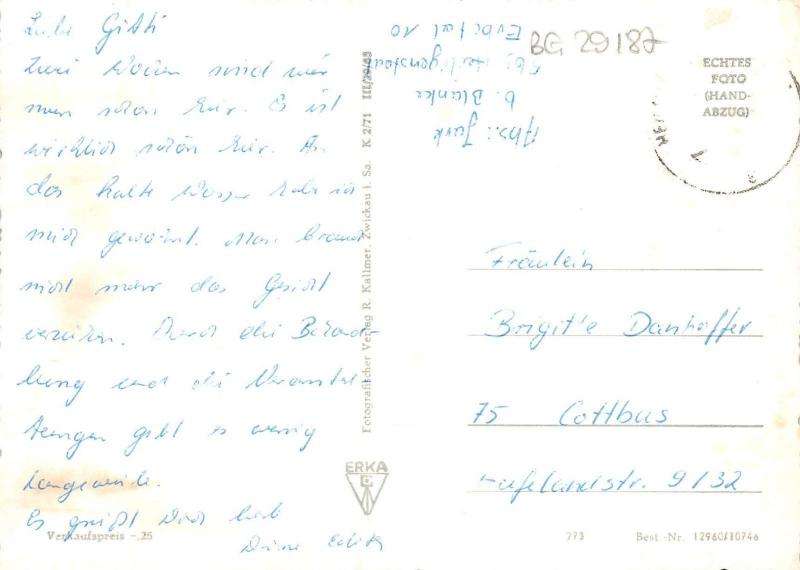 Liebe Gitti
Zwei Wochen sind wir
nun schon hier. Es ist
wirklich schön hier. An
das kalte Wasser habe ich
mich gewöhnt. Man braucht
nicht mehr das Gesicht
verziehen. Durch die Behand-
lung und die Veranstal-
tungen gibt es wenig
Langeweile.
Es grüßt Dich lieb
Deine Edith
Verkaufspreis -.25
Fotografischer Verlag R. Kallmer, Zwickau i. Sa. K 2/71 III/29/63
ERKA
Abs.: Junk
b. Blanke
Heiligenstadt
10
BG 29/187
ECHTES
FOTO
(HAND-
ABZUG)
Fräulein
Brigitte Danhoffer
75 Cottbus
Hufelandstr. 9/32
773
Best.-Nr. 12960/10746